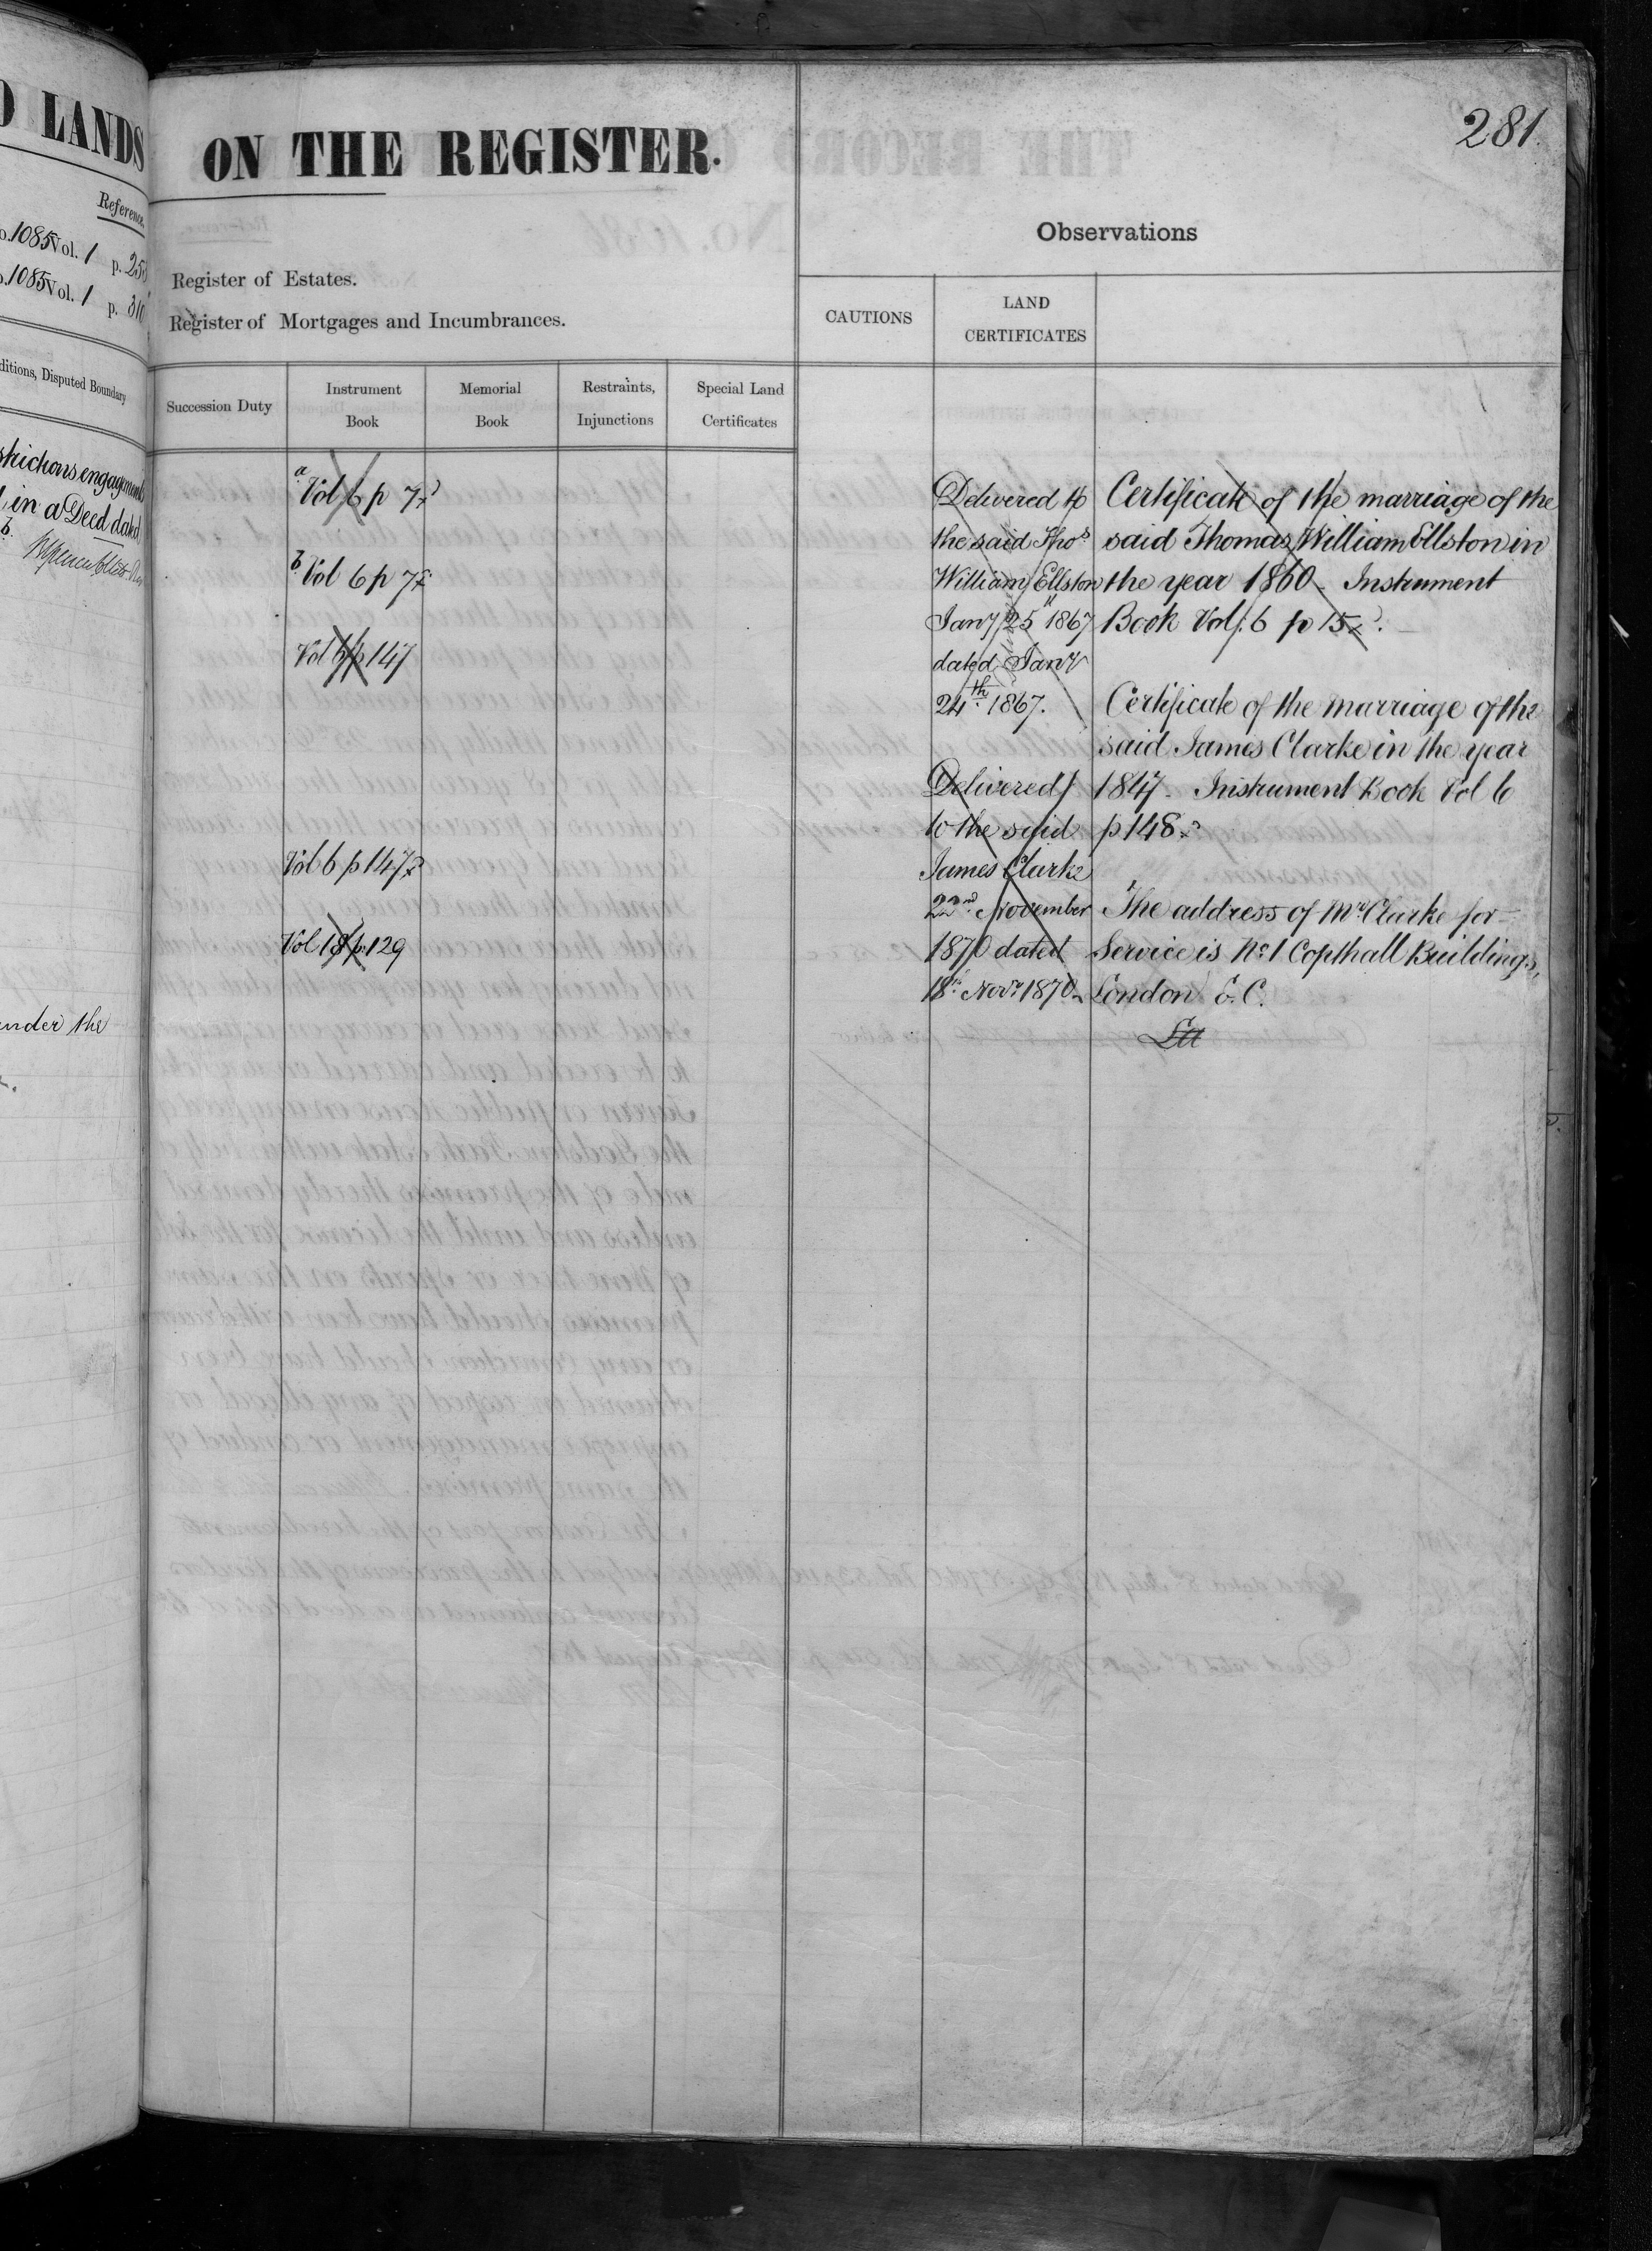 LANDS
Reference.
1085 Vol. 1 p. 253
1085 Vol. 1 p. 310
Conditions, Disputed Boundary
engagements
in a Deed dated
b.
under the
ON THE REGISTER.
281.
Register of Estates.
Register of Mortgages and Incumbrances.
Observations
CAUTIONS
LAND
CERTIFICATES
Succession Duty
Instrument
Book
Memorial
Book
Restraints,
Injunctions
Special Land
Certificates
a Vol 6 p 7
b Vol 6 p 7
Vol 6 p 147
Vol 6 p 147
Vol 18 p. 129
Delivered to
the said Thos
William Ellston
Jany 25 1867
dated Jany
24th 1867.
Delivered
to the said
James Clarke
22nd November
1870 dated
18th Novr 1870
Certificate of the marriage of the
said Thomas William Ellston in
the year 1860 - Instrument
Book Vol. 6 p 15.
Certificate of the marriage of the
said James Clarke in the year
1847 - Instrument Book Vol 6
p 148.
The address of Mr Clarke for
Service is No 1 Copthall Buildings,
London E. C.